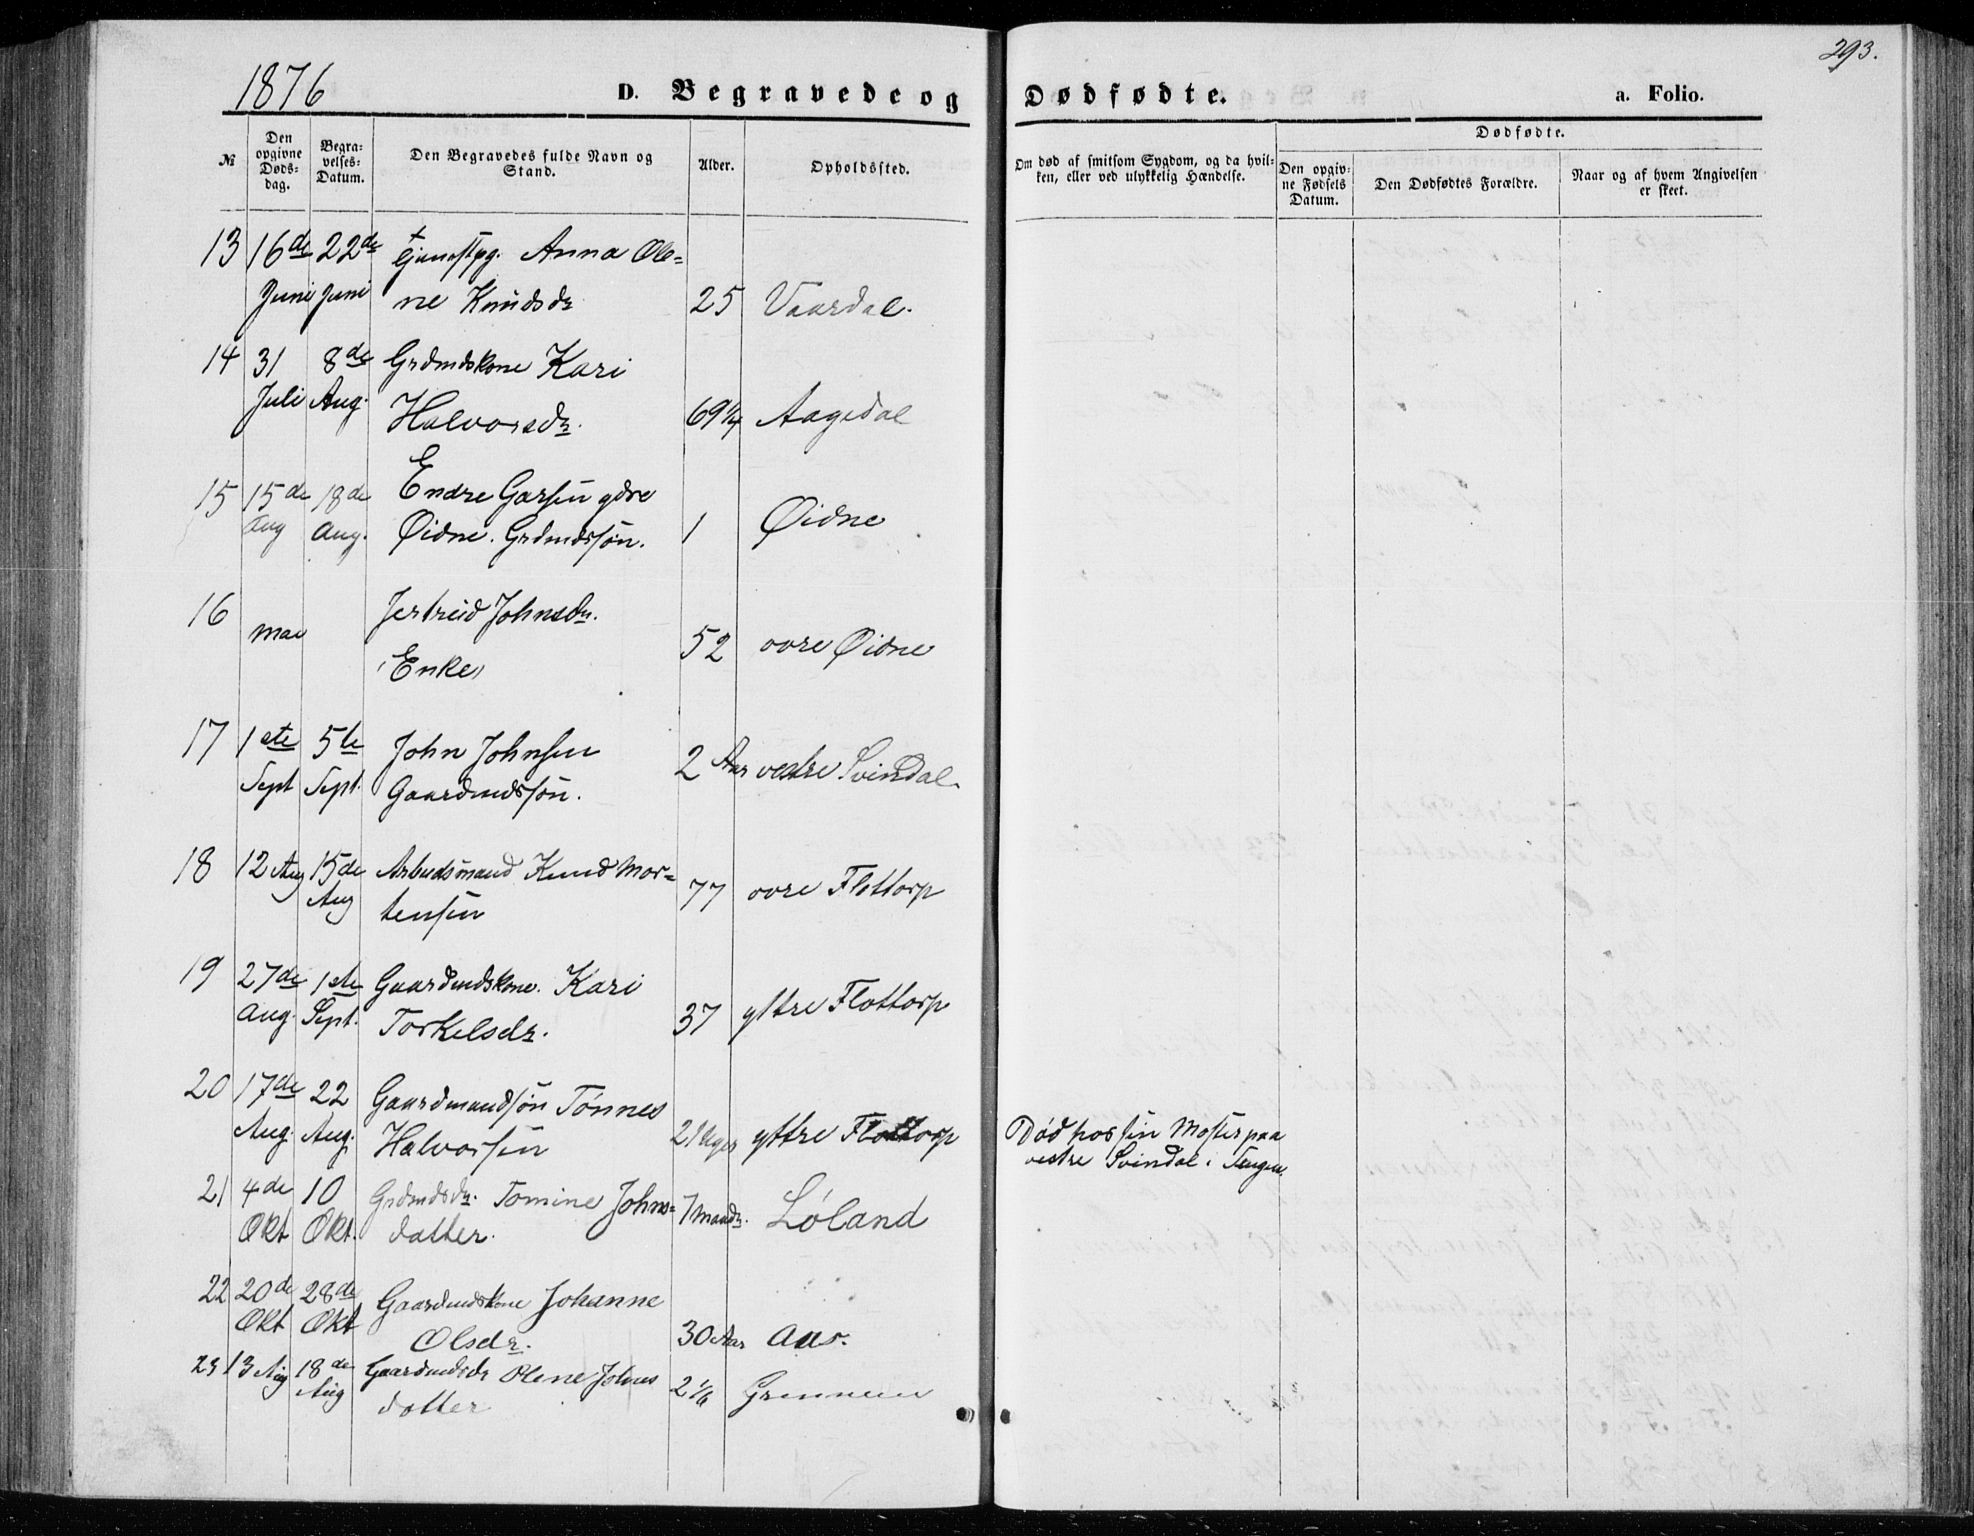 1876
293.
D. Begravede og Dødfødte.
a. Folio.
№
Den opgivne Døds-dag.
Begra-velses-Datum.
Den Begravedes fulde Navn og Stand.
Alder.
Opholdssted.
Om død af smitsom Sygdom, og da hvil-ken, eller ved ulykkelig Hændelse.
Dødfødte.
Den opgiv-ne Fødsels Datum.
Den Dødfødtes Forældre.
Naar og af hvem Angivelsen er skeet.
13 16de 22de Anna Ole-
Juni Juni ne Knudsdr 25 Vaardal.
14 31 8de Grdmdskone Kari
Juli Aug. Halvorsdr. 69 1/4 Aagedal
15 15de 18de Endre Garsen ydre
Aug Aug. Øidne. Grdmdssøn. 1 Øidne
16 Jertrud Johnsdr.
mai Enke 52 ovre Øidne
17 1ste 5te John Johnsen
Sept Sept. Gaardmdssøn. 2 Aar vestre Svindal.
18 12 Aug 15de Arbeidsmand Knud Mor-
Aug tensen 77 ovre Flottorp
19 27de 1ste Gaardmdskone. Kari
Aug. Sept. Torkelsdr. 37 yttre Flottorp
20 17de 22 Gaardmandsøn Tønnes
Aug. Aug. Halvorsen 2 Uger yttre Flottorp Død hos sin Moster paa
vestre Svindal i
21 4de 10 Grdmdsdr. Tomine Johns-
Okt Okt. datter. 7 Maadr. Løland
22 20de 28de Gaardmdskone Johanne
Okt Okt Olsdr. 30 Aar Aas.
23 13 Aug 18de Gaardmdsdr Olene Johns
Aug datter